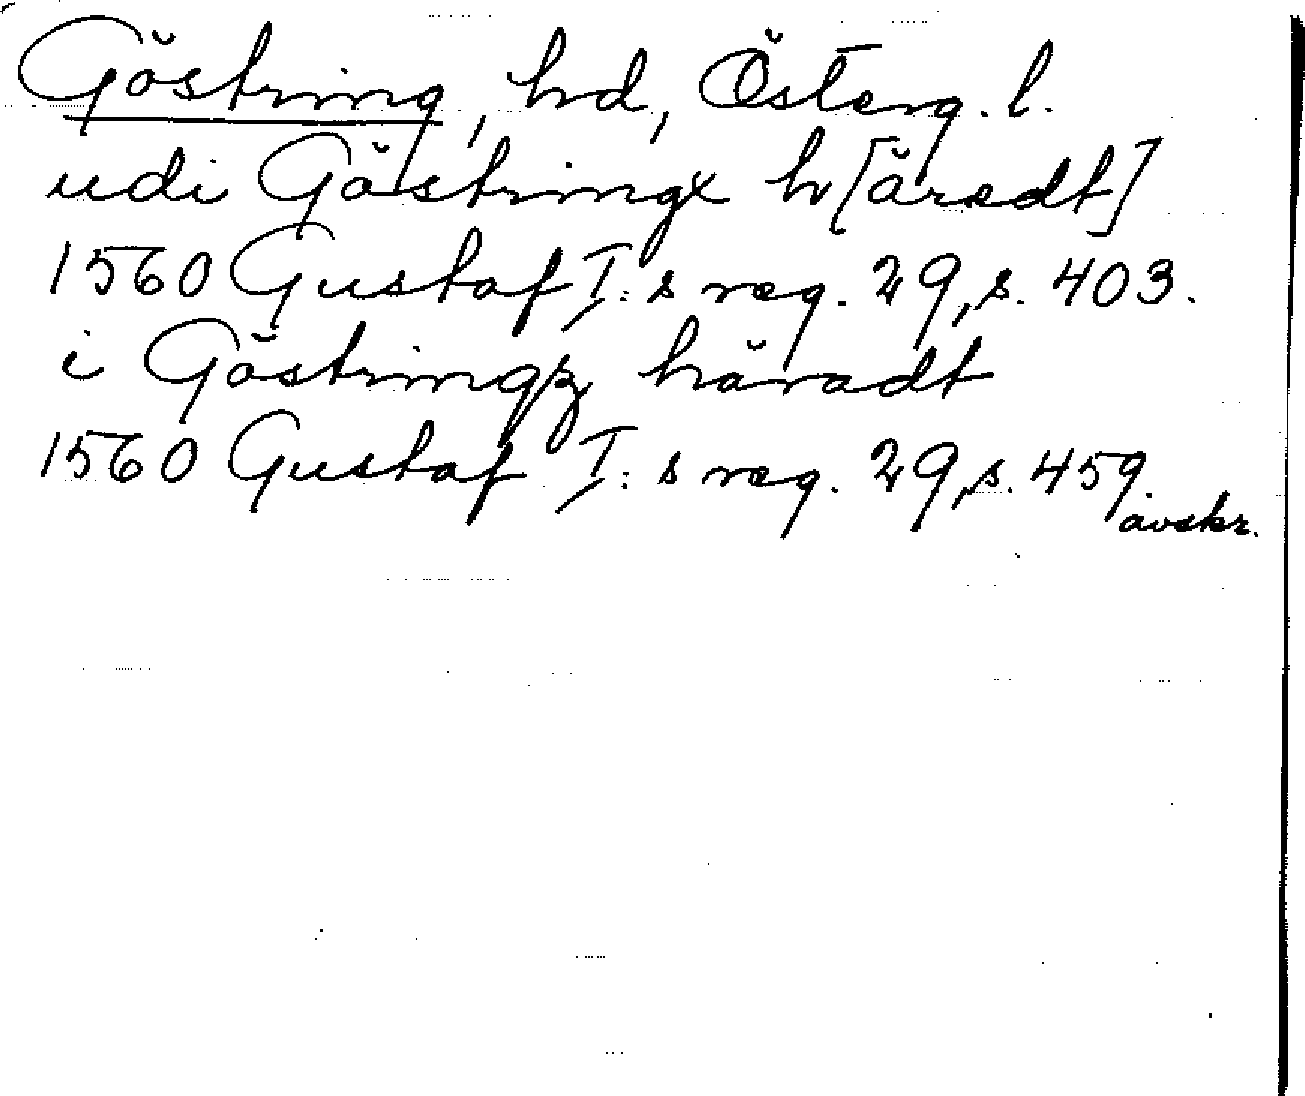 Göstring, hd, Österg. l.
udi Göstringx h[äredt]
1560 Gustaf I:s reg. 29, s. 403.
i Göstringz häradt
1560 Gustaf I:s reg. 29, s. 459.
avskr.